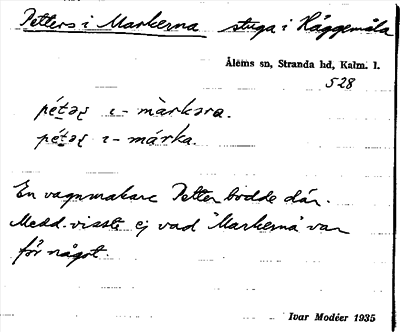 Petters i Markerna stuga i Häggemåla
Ålems sn, Stranda hd, Kalm. l.
528
pétəʂ ı - màrkəra.
pétəʂ ı - márka.
En vagnmakare Petter bodde där.
Medd. visste ej vad "Markerna" var
för något.
Ivar Modéer 1935